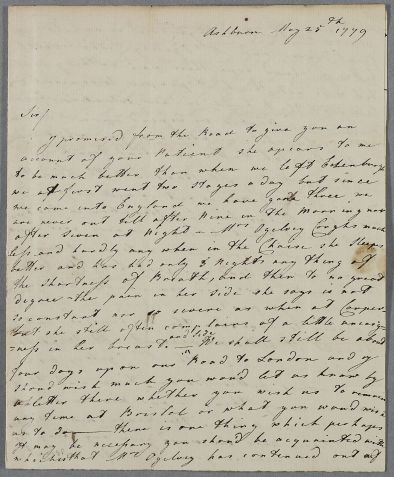 Ashburn May 25th 1779
Sir/
I promised from the Road to give you an
account of your Patient she apears to me
to be much better than when we left Edenburgh
we at first went two stages a day but since
we came into England we have gone three, we
are never out till after Nine in the Morning nor
after seven at Night — Mrs Ogelvey Coughs much
less and hardly any when in the Chaise she sleeps
better and has had only 3 Nights any thing of
the shortness of Breath and then to no great
degree — the pain in her side she says is not
so constant nor so severe as when at Cooper
but she still often complains of a little uneasy-
-ness in her breast and side — We shall still be about
four days upon our Road to London and I
shoud wish much you woud let us know by
a letter there whether you wish us to remain
any time at Bristol or what you woud wish
us to do — there is one thing which perhapes
it may be necessary you shoud be acquainted with
which is that Mrs Ogelvey has continued out of